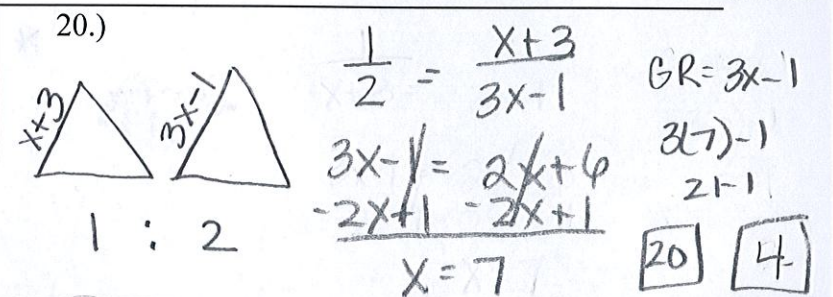 20.)
x+3
3x-1
1 : 2
1/2 = x+3/3x-1
3x-1 = 2x+6
-2x+1 -2x+1
x = 7
GR = 3x-1
3(7)-1
21-1
20 4